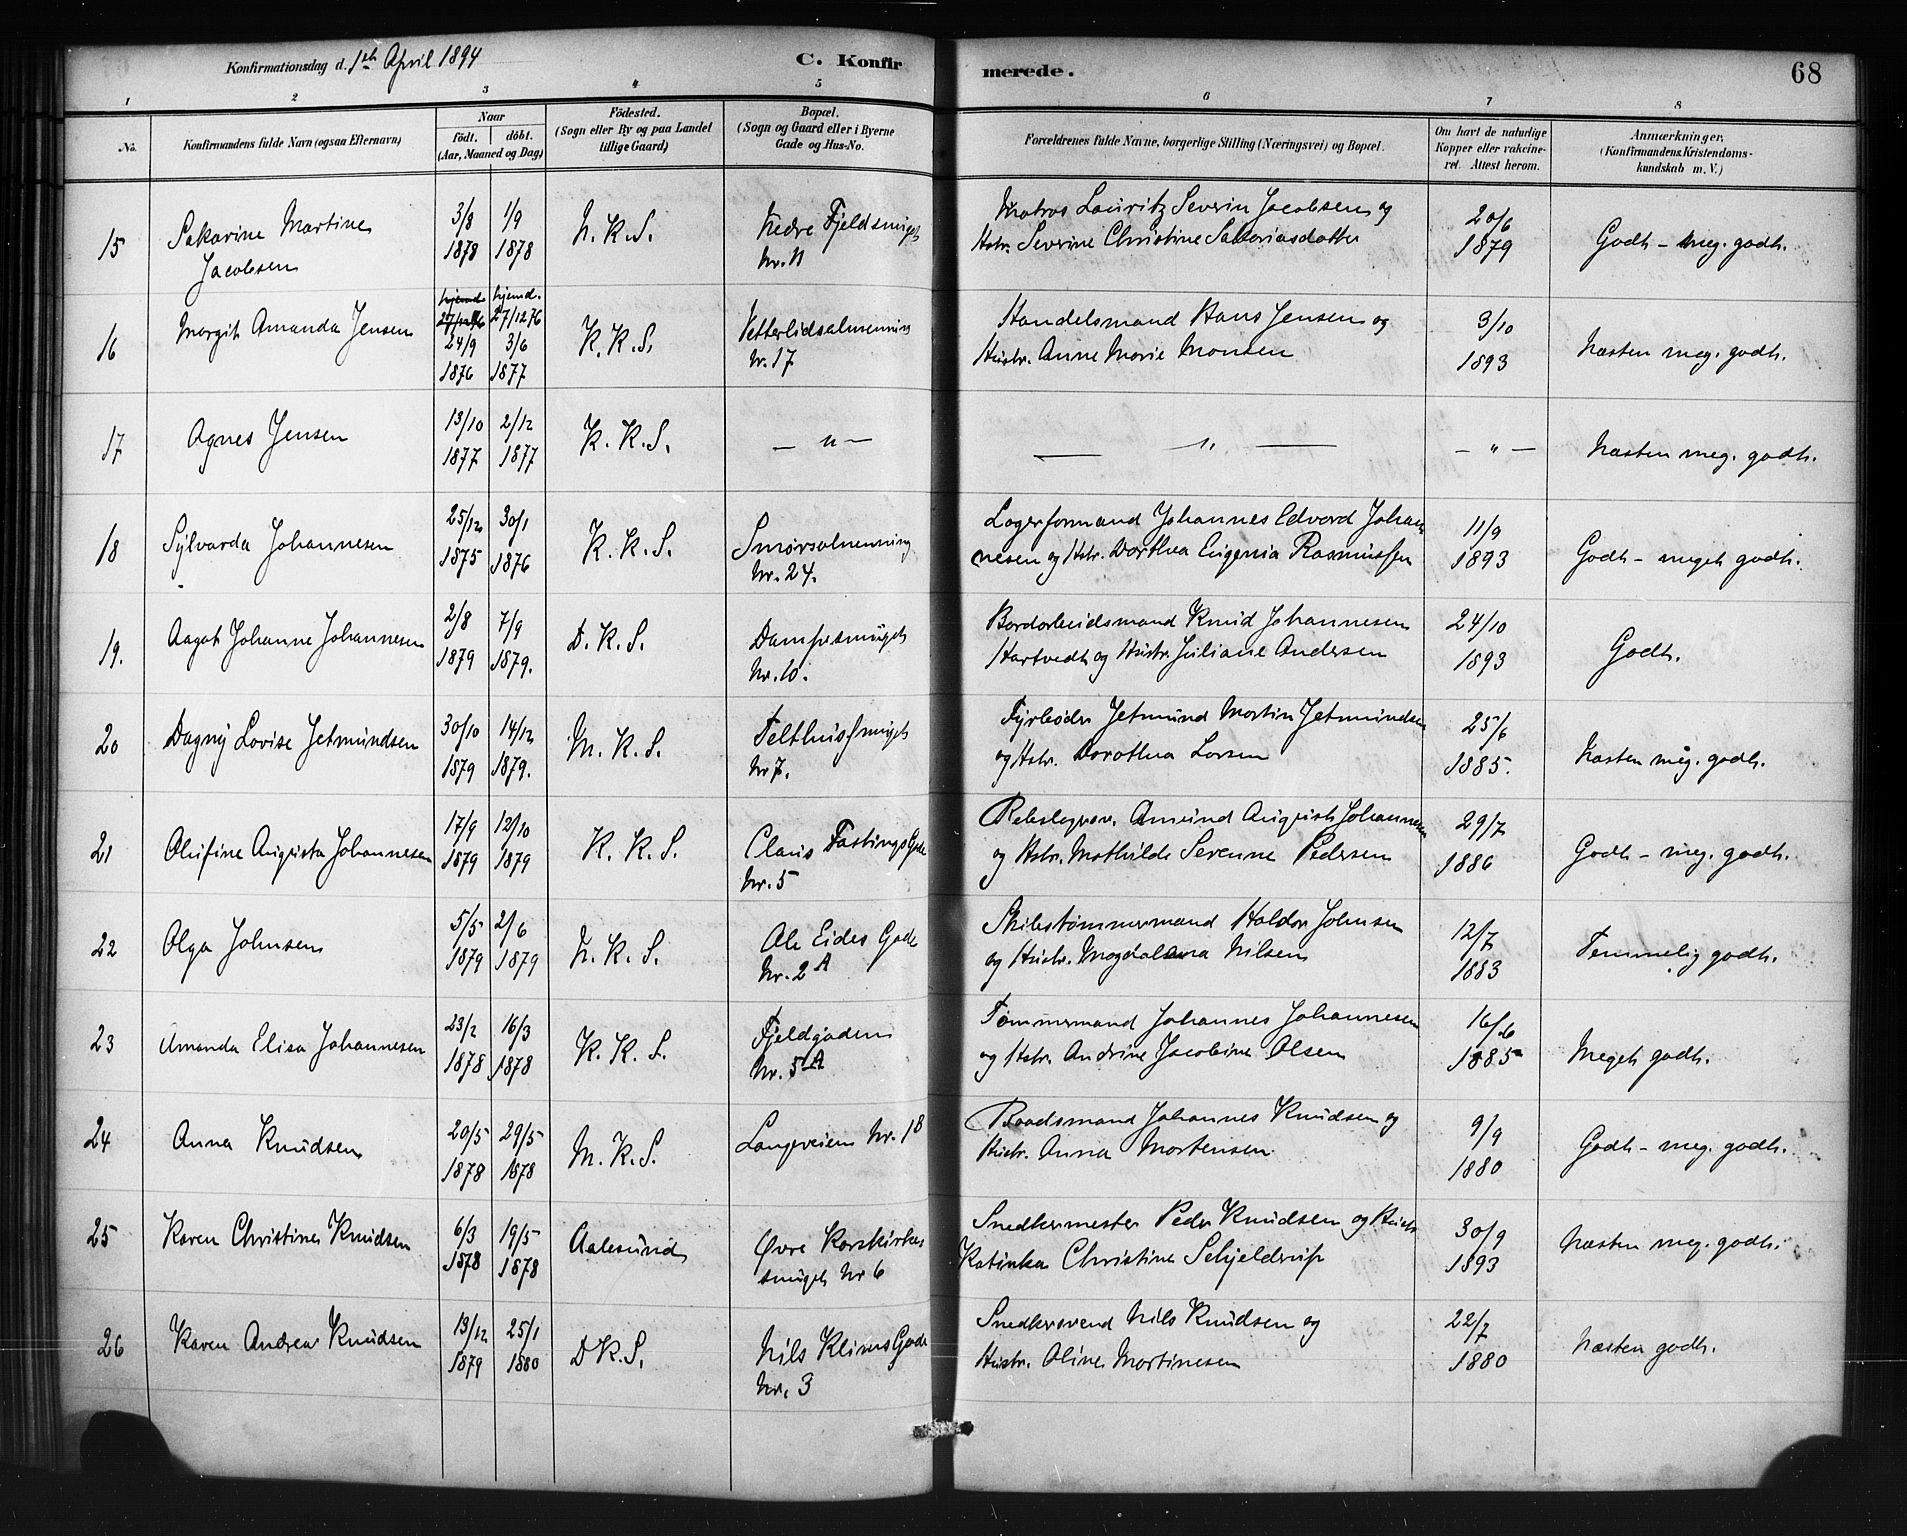 Konfirmationsdag d. 1ste April 1894
C. Konfirmerede.
68
1 2 3 4 5 6 7 8
No.
Konfirmandens fulde Navn (ogsaa Efternavn)
Naar
födt. döbt.
(Aar, Maaned og Dag)
Födested.
(Sogn eller By og paa Landet
tillige Gaard)
Bopæl.
(Sogn og Gaard eller i Byerne
Gade og Hus-No.
Forældrenes fulde Navne, borgerlige Stilling (Næringsvei) og Bopæl.
Om havt de naturlige
Kopper eller vakcine-
ret. Attest herom.
Anmærkninger,
(Konfirmandens Kristendoms-
kundskab m. V.)
15 Sakarine Martine
Jacobsen
3/8 1878
1/9 1878
N. K. S.
Nedre Fjeldsmuget
Nr. 11
Matros Lauritz Severin Jacobsen og
Hstr. Severine Christine Sakariasdatter
20/6 1879
Godt - meg. godt.
16 Margit Amanda Jensen
hjemd. 27/12 76 24/9 1876
hjemd. 27/12 76 3/6 1877
K. K. S.
Vetterlidsalmenning
Nr. 17
Handelsmand Hans Jensen og
Hustr. Anne Marie Monsen
3/10 1893
Næsten meg. godt.
17 Agnes Jensen
13/10 1877
2/12 1877
K. K. S.
— " —
— " —
— " —
Næsten meg. godt.
18 Sylvarda Johannesen
25/12 1875
30/1 1876
K. K. S.
Smørsalmenning
Nr. 24.
Lagerformand Johannes Edvard Johan
nesen og Hstr. Dorthea Eugenia Rasmussen
11/9 1893
Godt - meget godt.
19. Aagot Johanne Johannesen
2/8 1879
7/9 1879.
D. K. S.
Dampesmuget
Nr. 10.
Bordarbeidsmand Knud Johannesen
Hartvedt og Hustr. Juliane Andersen
24/10 1893
Godt.
20 Dagny Lovise Jetmundsen
30/10 1879
14/12 1879.
M. K. S.
Felthussmuget
Nr 7.
Fyrbøder Jetmund Martin Jetmundsen
og Hstr. Dorothea Larsen
25/6 1885.
Næsten meg. godt.
21 Olufine Augusta Johannesen
17/9 1879
12/10 1879
K. K. S.
Claus Fastings Gade
Nr. 5
Rebslagersv. Amund August Johannesen
og Hstr. Mathilde Serenne Pedersen
29/7 1886
Godt - meg. godt.
22 Olga Johnsen
5/5 1879
2/6 1879
N. K. S.
Ole Eides Gade
Nr. 2 A
Skibstømmermand Haldor Johnsen
og Hustr. Magdalena Nilsen
12/7 1883
Temmelig godt.
23 Amanda Elisa Johannesen
23/2 1878
16/3 1878
K. K. S.
Fjeldgaden
Nr. 5 A
Tømmermand Johannes Johannesen
og Hstr. Andrine Jacobine Olsen
16/6 1885
Meget godt.
24 Anna Knudsen
20/5 1878
29/5 1878
M. K. S.
Langeveien Nr. 18
Baadsmand Johannes Knudsen og
Hustr. Anna Mortensen
9/9 1880
Godt - meg. godt.
25 Karen Christine Knudsen
6/3 1878
19/5 1878
Aalesund
Øvre Korskirke
smuget Nr 6
Snedkermester Peder Knudsen og Hustr.
Katinka Christine Schjeldrup
30/9 1893
Næsten meg. godt.
26 Karen Andrea Knudsen
13/12 1879
25/1 1880
D K. S.
Nils Klims Gade
Nr. 3
Snedkersvend Nils Knudsen og
Hustr. Oline Martinesen
22/7 1880
Næsten godt.